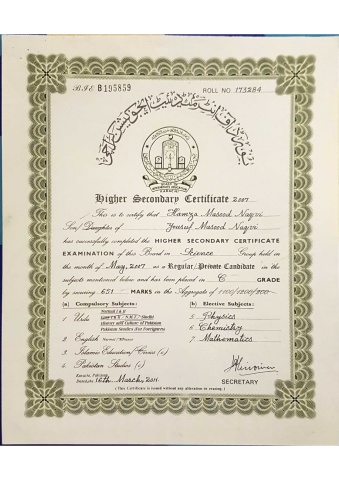 B·I·E B195859
ROLL NO. 173284
Higher Secondary Certificate 2007
This is to certify that Hamza Masood Naqvi
Son/Daughter of Yousuf Masood Naqvi
has successfully completed the HIGHER SECONDARY CERTIFICATE
EXAMINATION of this Board in Science Group held in
the month of May, 2007 as a Regular/Private Candidate in the
subjects mentioned below and has been placed in C GRADE
by securing 651 MARKS in the Aggregate of 1100/1200/
(a) Compulsory Subjects:
(b) Elective Subjects:
Normal I & II
1 Urdu
History and Culture of Pakistan
Pakistan Studies (For Foreigners)
5 Physics
2 English Normal
6 Chemistry
3 Islamic Education/Civics (c)
7 Mathematics
4 Pakistan Studies (c)
Karachi, Pakistan
Dated the 16th March, 2011
SECRETARY
(This Certificate is issued without any alteration or erasing.)